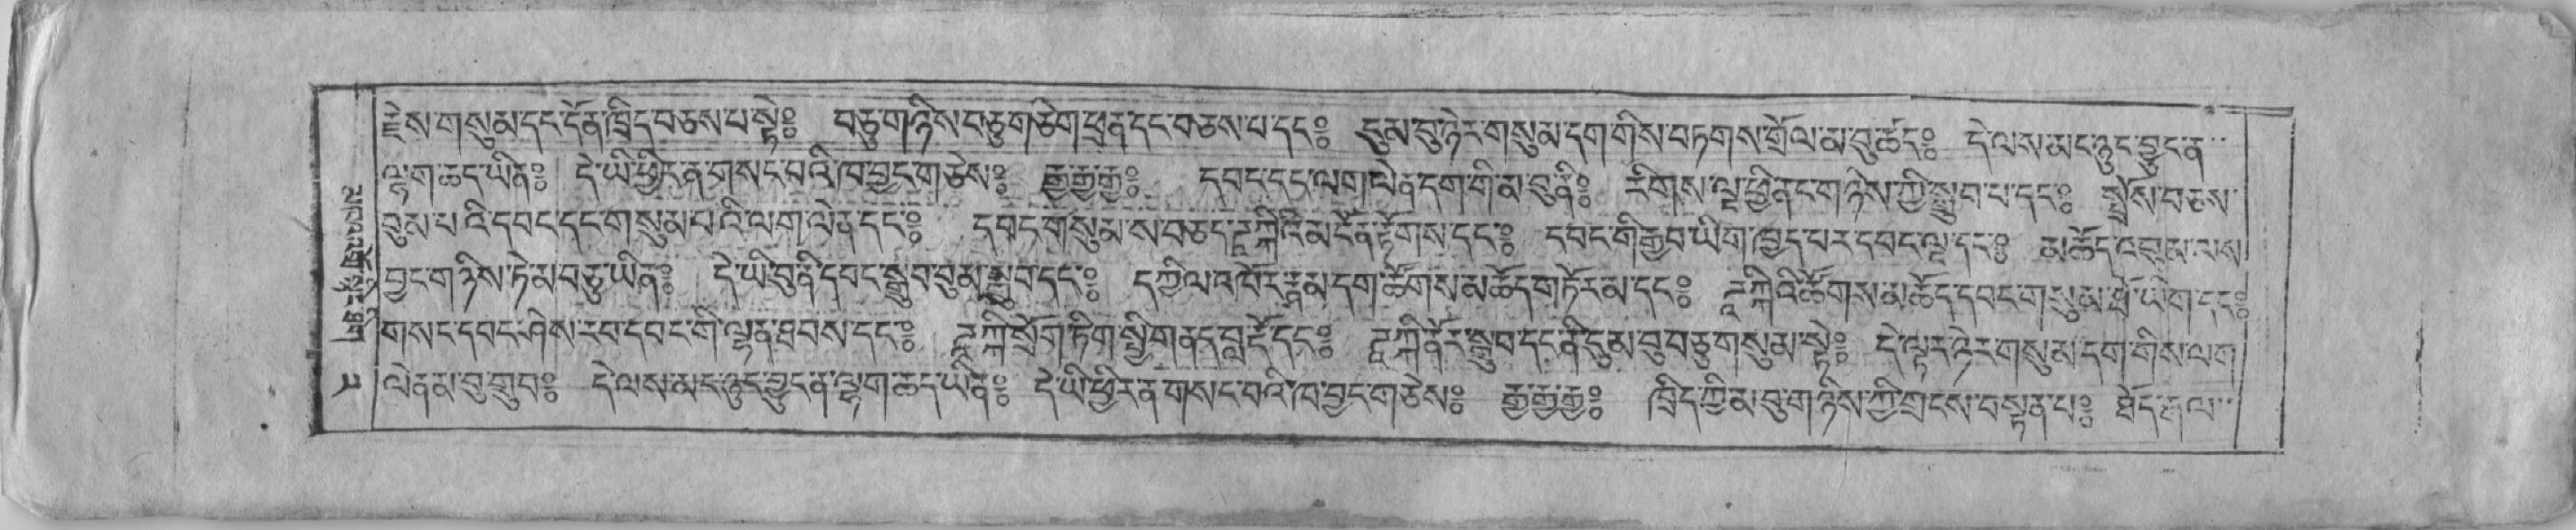 རྗེས་གསུམ་དང་དོན་ཁྲིད་བཅས་པ་སྟེ༔ བཅུ་གཉིས་བཅུ་གཅིག་ཕྲན་དང་བཅས་པ་དང༔ དུམ་བུ་ཉེར་གསུམ་དག་གིས་བཏགས་གྲོལ་མ་བུ་ཚང༔ དེ་ལས་མང་ཉུང་བྱུང་ན
ལྷག་ཆད་ཡིན༔ དེ་ཡི་ཕྱིར་ན་གསང་བའི་ཁ་བྱང་གཅེས༔ རྒྱ་རྒྱ་རྒྱ༔ དབང་དང་ལག་ལེན་དག་གི་མ་བུ་ནི༔ རིགས་ལྔ་ཕྱི་ནང་གཉིས་ཀྱི་སྒྲུབ་པ་དང༔ སྤྲོས་བཅས
བུམ་པའི་དབང་དང་གསུམ་པའི་ལག་ལེན་དང༔ དབང་གསུམ་ས་བཅད་ཌཱཀྐིའི་མངོན་རྟོགས་དང༔ དབང་གི་རྒྱབ་ཡིག་ཁྱད་པར་དབང་ལྔ་དང༔ མ་ཚོད་འབུམ་ལས
བྱང་གཉིས་ཏེ་མ་བཅུ་ཡིན༔ དེ་ཡི་བུ་ནི་དབང་སྒྲུབ་བུམ་སྒྲུབ་དང༔ དཀྱིལ་འཁོར་རྣམ་དག་ཚོགས་མཆོད་གཏོར་མ་དང༔ ཌཱཀྐིའི་ཚོགས་མཆོད་དབང་གསུམ་ཐོ་ཡིག་དང༔
གསང་དབང་ཤེས་རབ་དབང་གི་ལྷན་ཐབས་དང༔ ཌཱཀྐི་སྲོག་ཏིག་སྤྱི་གནད་བླ་རྡོ་དང༔ ཌཱཀྐི་ནོར་སྒྲུབ་དང་ནི་དུམ་བུ་བཅུ་གསུམ་སྟེ༔ དེ་ལྟར་ཉེར་གསུམ་དག་གིས་ལག
ལེན་མ་བུ་གྲུབ༔ དེ་ལས་མང་ཉུང་བྱུང་ན་ལྷག་ཆད་ཡིན༔ དེ་ཡི་ཕྱིར་ན་གསང་བའི་ཁ་བྱང་གཅེས༔ རྒྱ་རྒྱ་རྒྱ༔ ཁྲིད་ཀྱི་མ་བུ་གཉིས་ཀྱི་གྲངས་བསྟན་པ༔ ཐོད་རྒལ